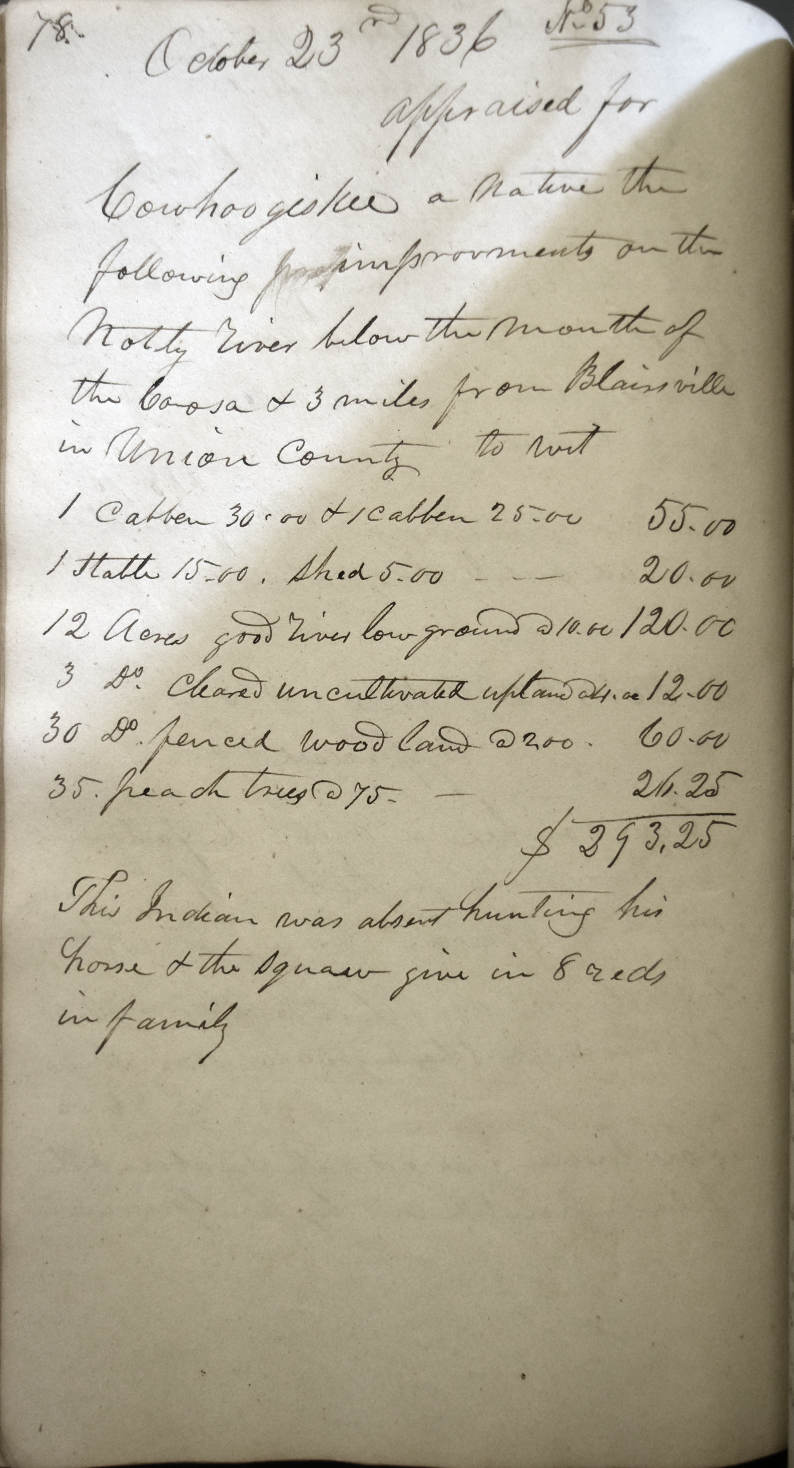 78.
October 23rd 1836 No 53
appraised for
Cowhoogiskee a Native the
following improvments on the
Notty River below the mouth of
the Coosa & 3 miles from Blairsville
in Union County to wit
1 Cabben 30.00 & 1 Cabben 25.00 55.00
1 Stable 15.00. Shed 5.00 - - - 20.00
12 Acres good River low ground @ 10.00 120.00
3 Do. Cleared uncultivated upland @ 4.00 12.00
30 Do. fenced wood land @ 200. 60.00
35. peach trees @ 75. - 26.25
$ 293.25
This Indian was absent hunting his
horse & the squaw give in 8 reds
in family